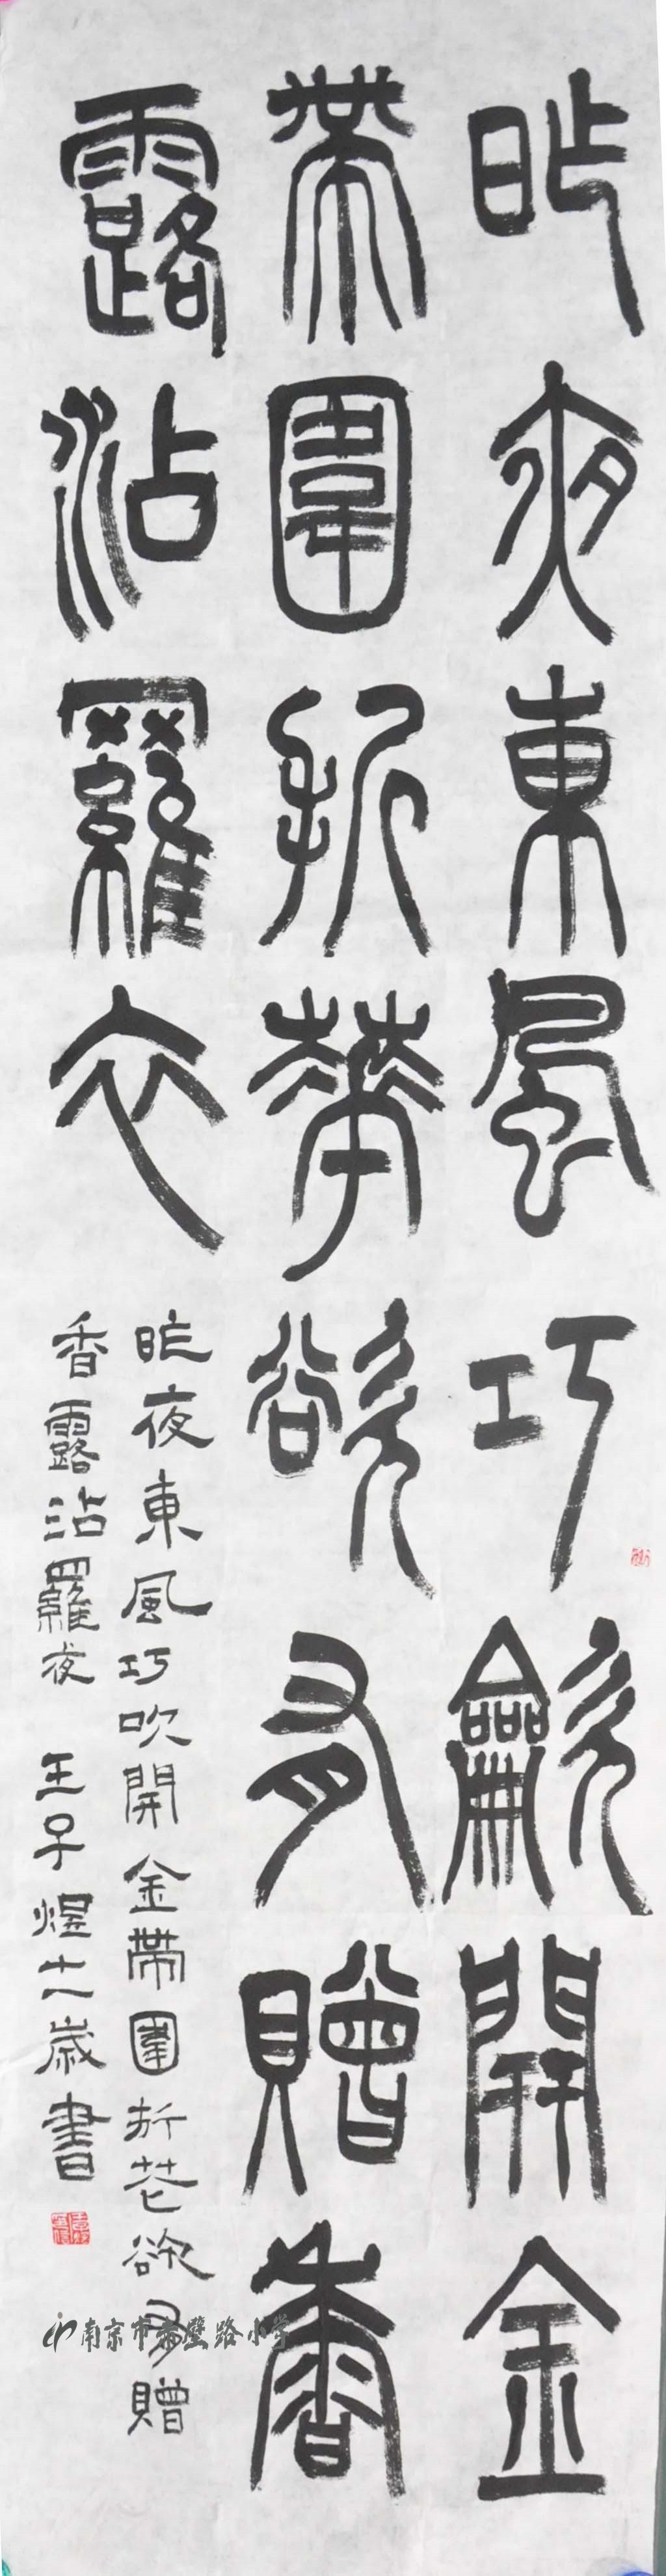 昨夜東風巧龡開金
帶圍折華欲有贈香
露沾羅衣
昨夜東風巧吹開金帶圍折花欲有贈
香露沾羅夜 王子煜十一歲書
南京市赤壁路小学